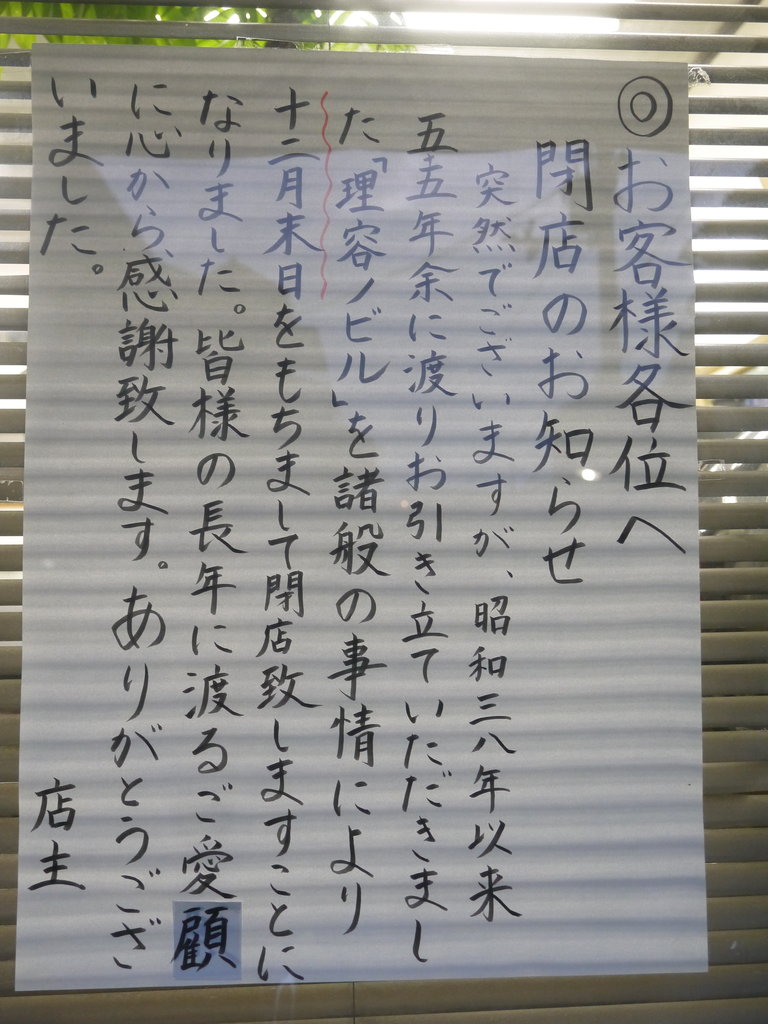 ◎お客様各位へ
閉店のお知らせ
突然でございますが、昭和三八年以来
五十五年余に渡りお引き立ていただきまし
た「理容ノビル」を諸般の事情により
十二月末日をもちまして閉店致しますことに
なりました。皆様の長年に渡るご愛顧
に心から感謝致します。ありがとうござ
いました。
店主